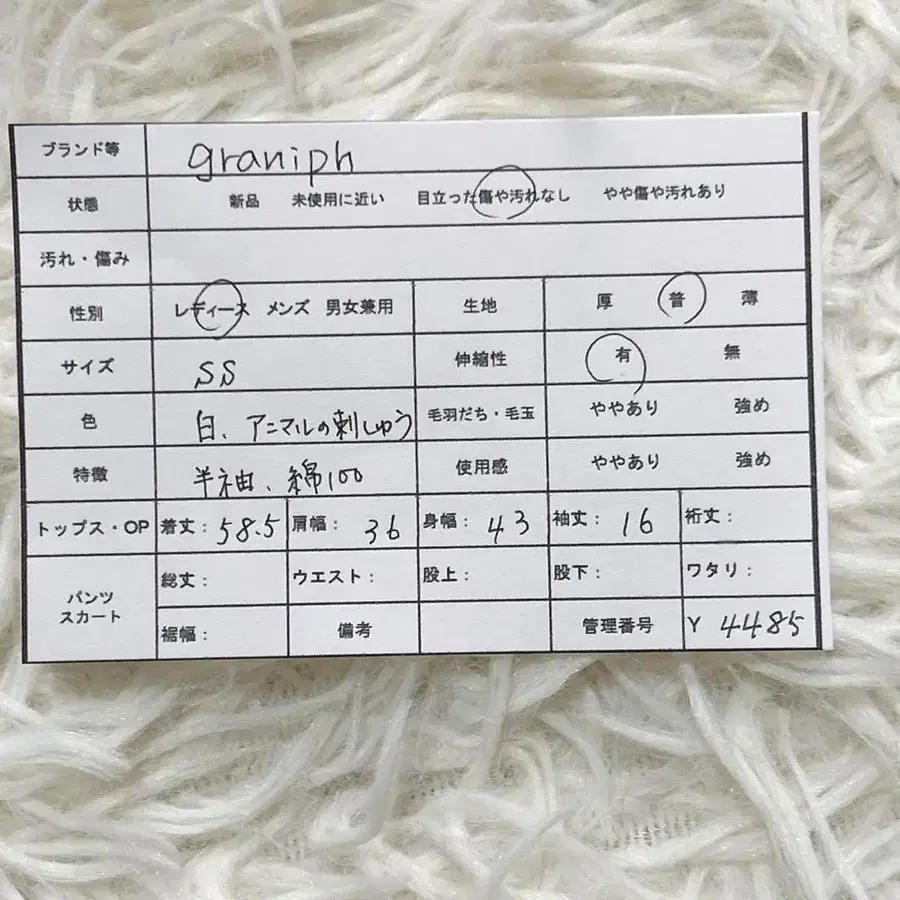 ブランド等 graniph
状態 新品 未使用に近い 目立った傷や汚れなし やや傷や汚れあり
汚れ・傷み
性別 レディース メンズ 男女兼用 生地 厚 普 薄
サイズ SS 伸縮性 有 無
色 白、アニマルの刺しゅう 毛羽だち・毛玉 ややあり 強め
特徴 半袖、綿100 使用感 ややあり 強め
トップス・OP 着丈: 58.5 肩幅: 36 身幅: 43 袖丈: 16 裄丈:
パンツ スカート 総丈: ウエスト: 股上: 股下: ワタリ:
裾幅: 備考 管理番号 Y 4485